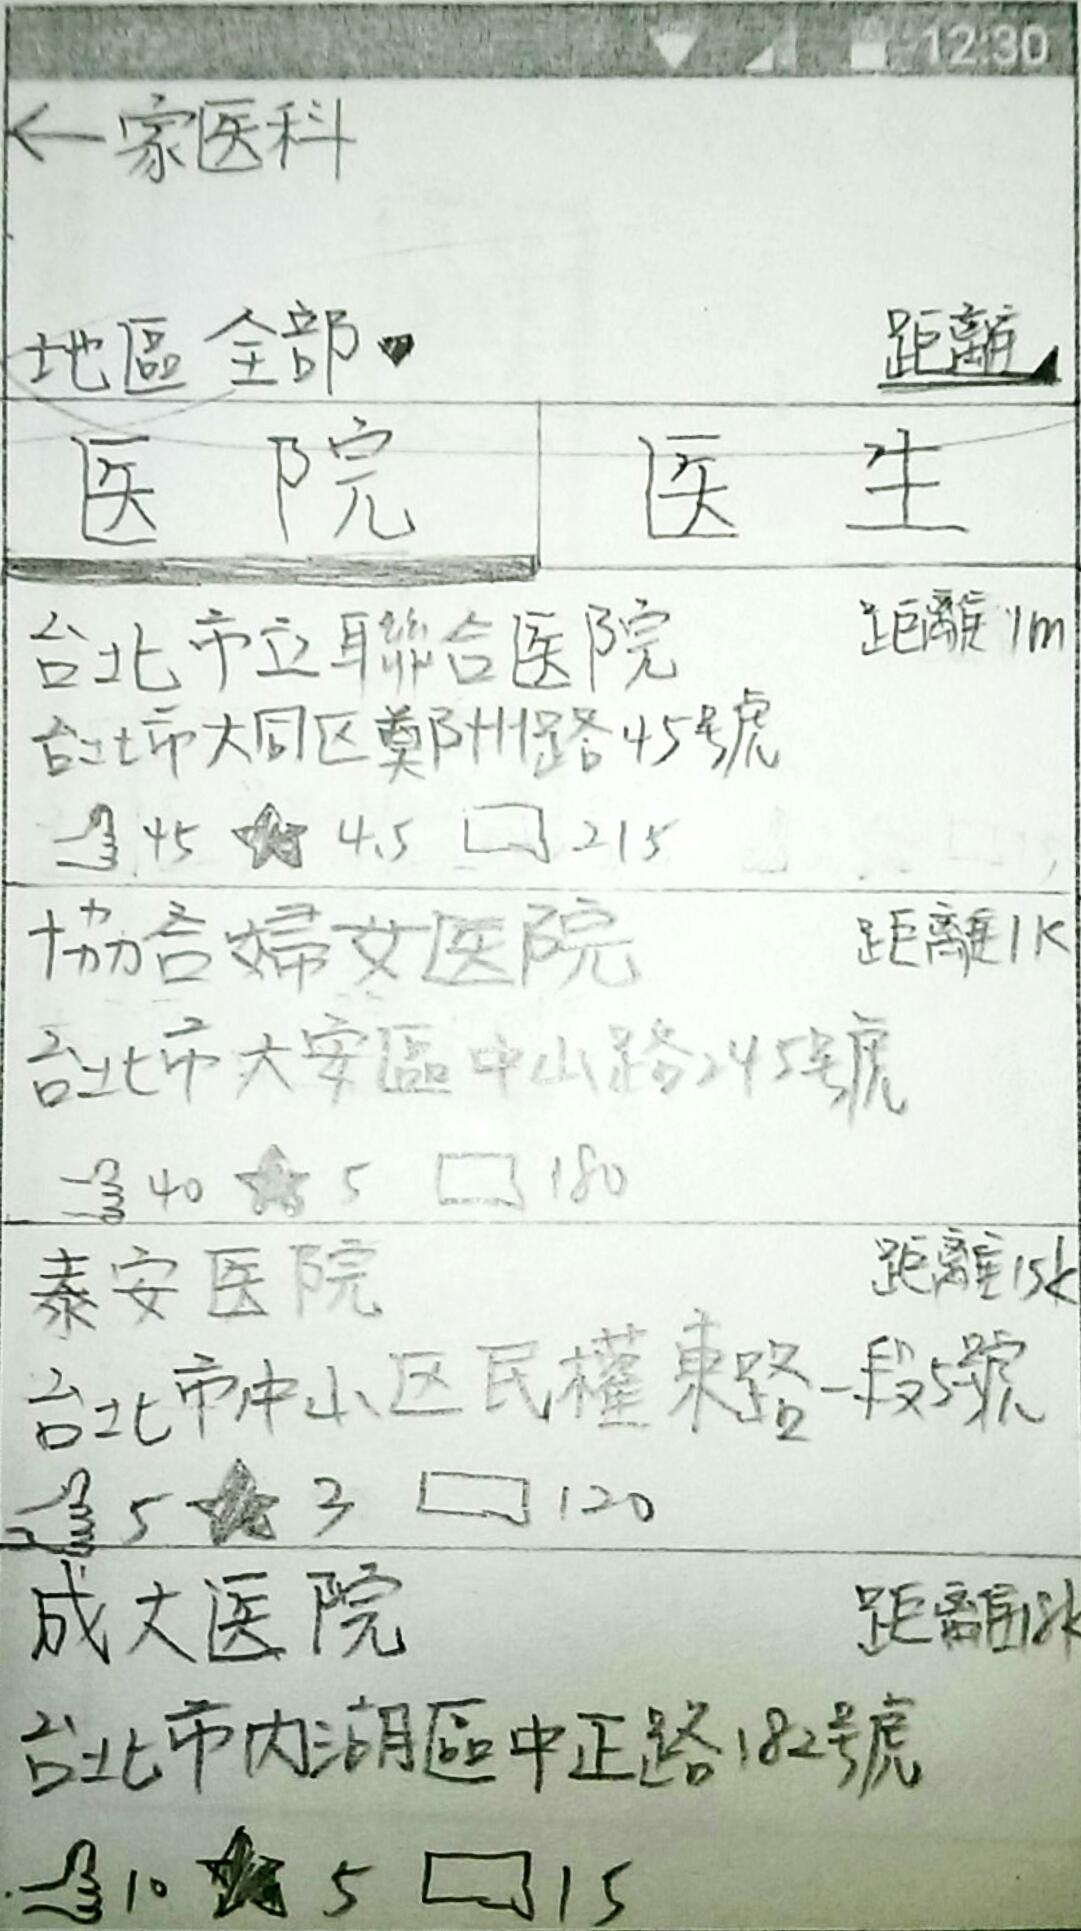 12:30
←家医科
地區 全部 距離
医院 医生
台北市立聯合医院 距離1m
台北市大同区鄭州路45号虎
45 4.5 215
協合婦女医院 距離1K
台北市大安區中山路245号虎
40 5 180
泰安医院 距離15k
台北市中山区民權東路一段5號
5 3 120
成大医院 距離18k
台北市内湖區中正路182号虎
10 5 15